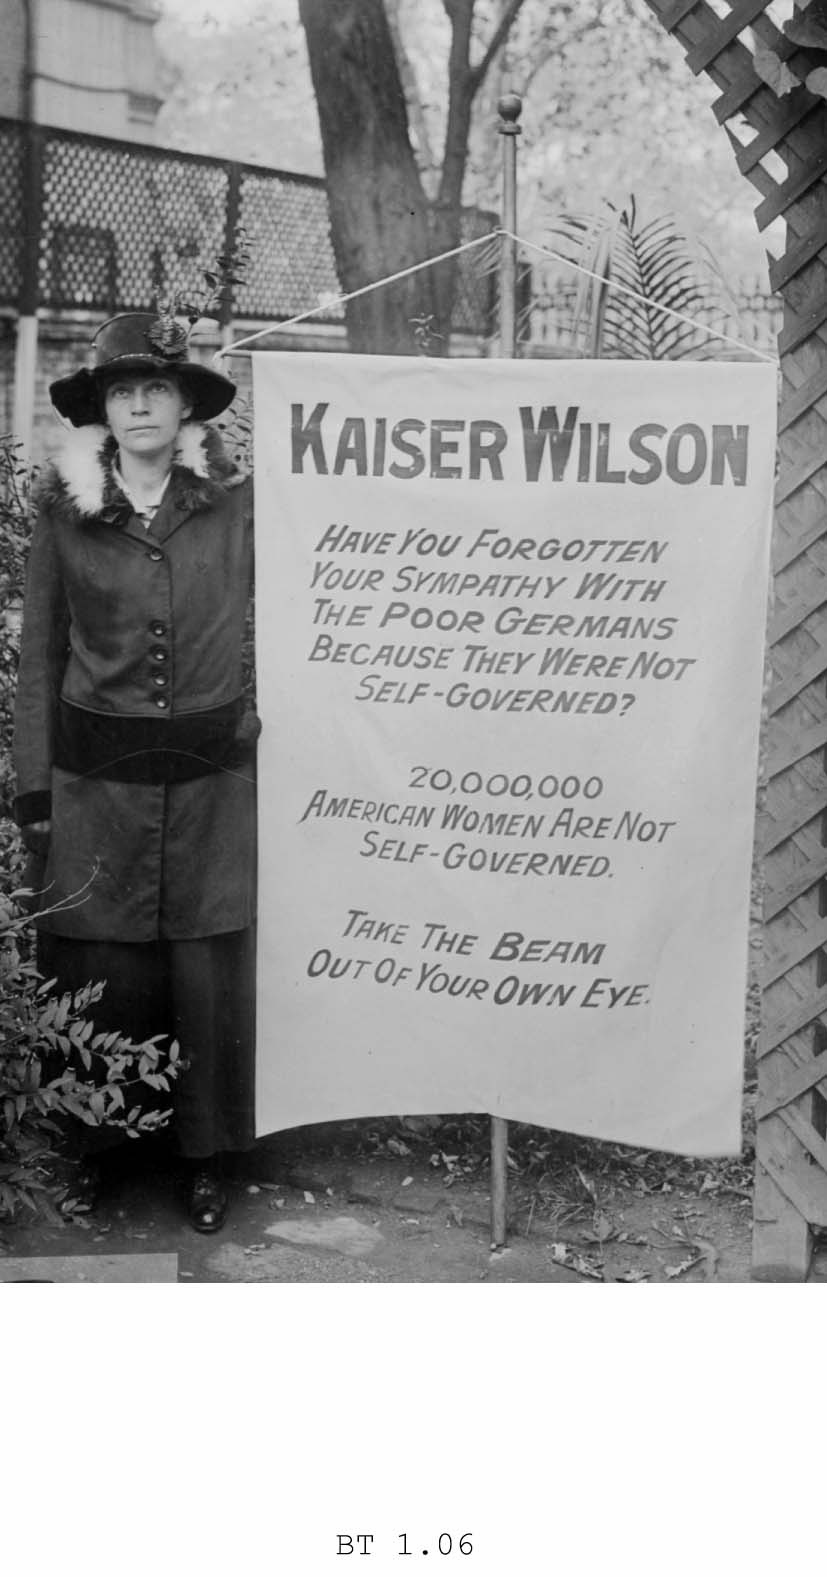 KAISER WILSON
HAVE YOU FORGOTTEN
YOUR SYMPATHY WITH
THE POOR GERMANS
BECAUSE THEY WERE NOT
SELF-GOVERNED?
20,000,000
AMERICAN WOMEN ARE NOT
SELF-GOVERNED.
TAKE THE BEAM
OUT OF YOUR OWN EYE.
BT 1.06